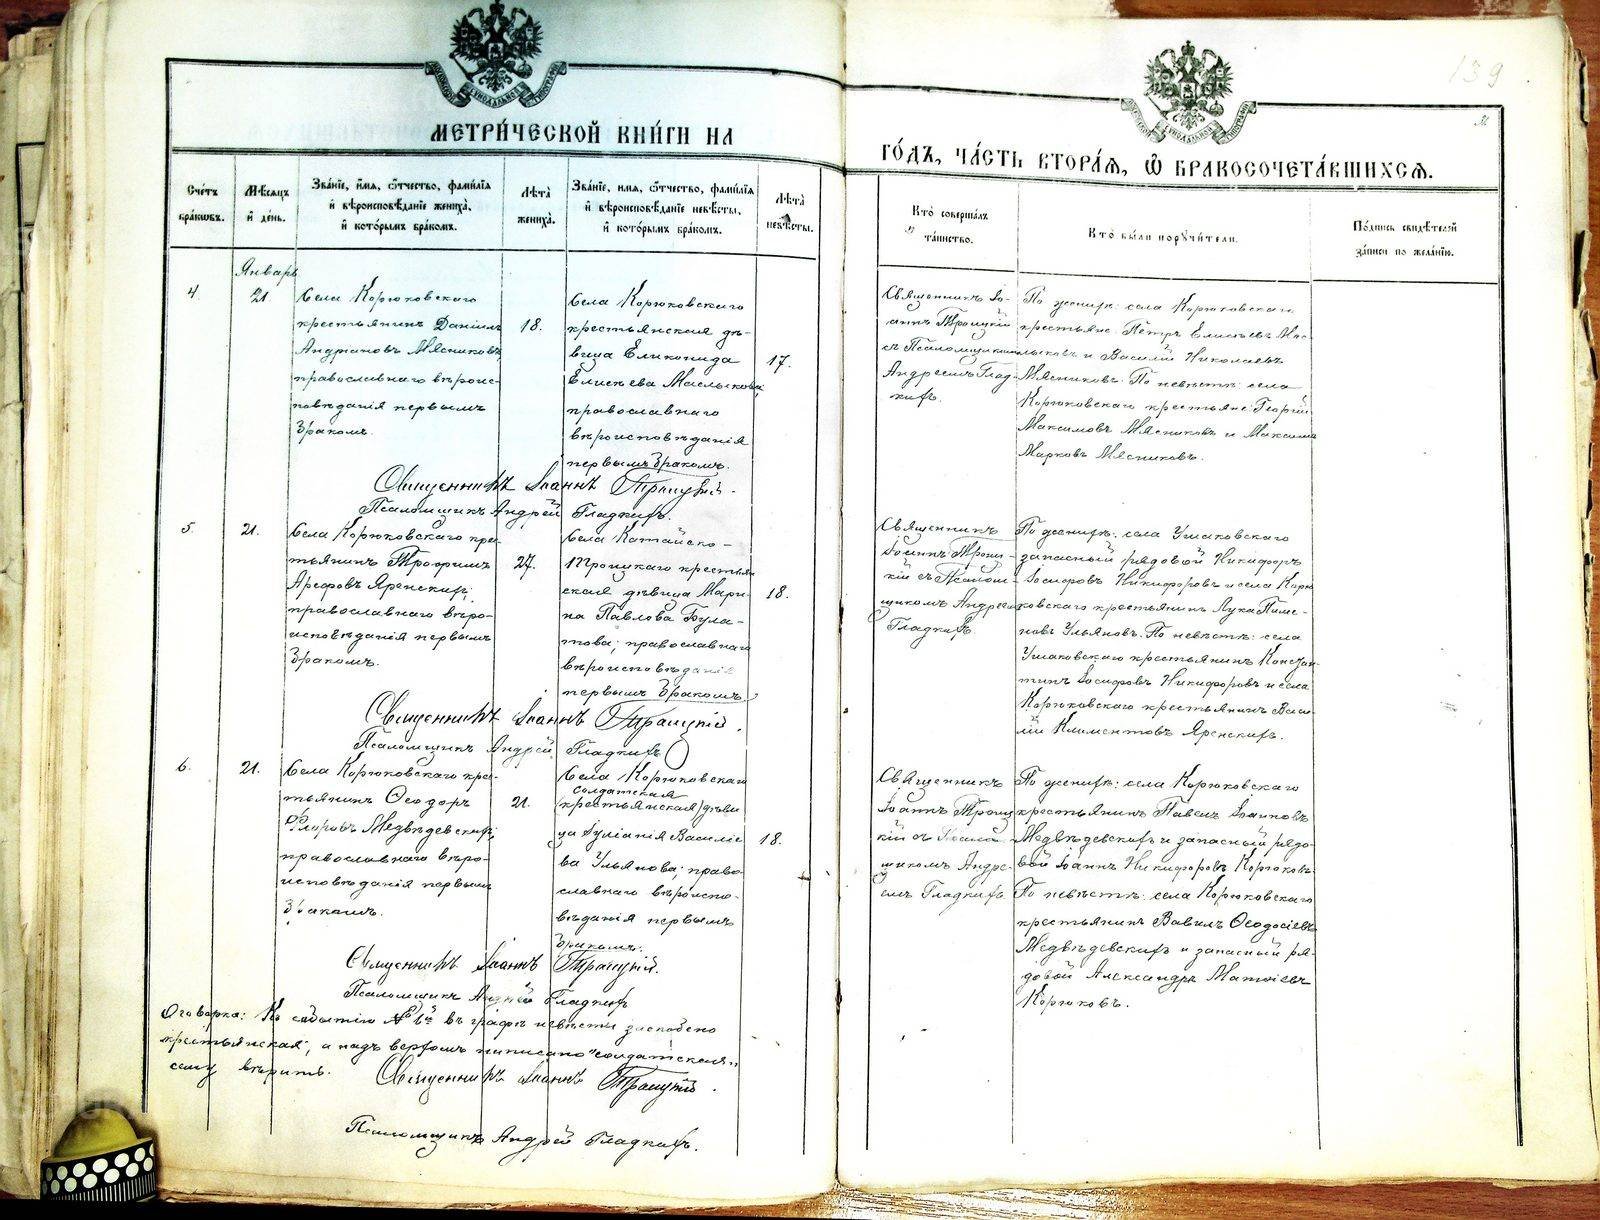 139
МЕТРИ́ЧЕСКОЙ КНИ́ГИ НА
ГО́ДЪ, ЧА́СТЬ ВТОРА́Я, Ѿ БРАКОСОЧЕТА́ВШИХСЯ.
Сче́тъ бра́ковъ.
Мѣ́сяцъ и́ де́нь.
Зва́нїе, и́мя, ѻ́тчество, фами́лїя
и́ вѣроисповѣ́данїе жениха̀,
и́ кото́рымъ бра́комъ.
Лѣта̀ жениха̀.
Зва́нїе, и́мя, ѻ́тчество, фами́лїя
и́ вѣроисповѣ́данїе невѣ́сты,
и́ кото́рымъ бра́комъ.
Лѣта̀ невѣ́сты.
Кто̀ соверша́лъ
та́инство.
Кто̀ бы́ли поручи́тели.
По́дпись свидѣ́телей
за́писи по жела́нїю.
Январь
4.
21.
Села Корюковскаго
крестьянинъ Данiилъ
Андрiановъ Мясниковъ
православнаго вѣроис-
повѣданiя первымъ
бракомъ.
18.
Села Корюковскаго
крестьянская дѣ-
вица Еликонида
Елисѣева
православнаго
вѣроисповѣданiя
первымъ бракомъ.
17.
Священникъ Iо-
аннъ Троицкiй
съ Псаломщикомъ
Андреемъ Глад-
кихъ.
По женихѣ: села Корюковскаго
крестьяне: Петръ Елисѣевъ
и Василiй Николаевъ
Мясниковъ. По невѣстѣ: села
Корюковскаго крестьяне: Георгiй
Максимовъ Мясниковъ и Максимъ
Марковъ Мясниковъ.
Священникъ Iоаннъ Троицкiй.
Псаломщикъ Андрей Гладкихъ.
5.
21.
Села Корюковскаго кре-
стьянинъ Трофимъ
Арефовъ Яренскихъ,
православнаго вѣро-
исповѣданiя первымъ
бракомъ.
27.
Села Катайско-
Троицкаго крестьян
ская дѣвица Мари-
на Павлова Була-
това; православнаго
вѣроисповѣданiя
первымъ бракомъ.
18.
Священникъ
Iоаннъ Трои-
цкiй съ Псалом-
щикомъ Андреемъ
Гладкихъ
По женихѣ: села Ушаковскаго
запасный рядовой Никифоръ
Iосифовъ Никифоровъ и села Корю
ковскаго крестьянинъ Лука Пиме-
новъ Ульяновъ. По невѣстѣ: села
Ушаковскаго крестьянинъ Констан-
тинъ Iосифовъ Никифоровъ и села
Корюковскаго крестьянинъ Васи-
лiй Климентовъ Яренскихъ.
Священникъ Iоаннъ Троицкiй.
Псаломщикъ Андрей Гладкихъ
6.
21.
Села Корюковскаго кре-
стьянинъ Ѳеодоръ
Флоровъ Медвѣдевскихъ,
православнаго вѣро-
исповѣданiя первымъ
бракомъ.
21.
Села Корюковскаго
солдатская
(крестьянская) дѣви
ца Iулiанiя Василiе
ва Ульянова; право
славнаго вѣроиспо-
вѣданiя первымъ
бракомъ.
18.
Священникъ
Iоаннъ Троиц
кiй съ Псалом
щикомъ Андре-
емъ Гладкихъ
По женихѣ: села Корюковскаго
крестьянинъ Павелъ Iоанновъ
Медвѣдевскихъ и запасный рядо
вой Iоаннъ Никифоровъ Корюковъ.
По невѣстѣ: села Корюковскаго
крестьянинъ Вавилъ Ѳеодосiевъ
Медвѣдевскихъ и запасный ря-
довой Александръ Матѳiевъ
Корюковъ.
Священникъ Iоаннъ Троицкiй.
Псаломщикъ Андрей Гладкихъ
Оговорка: Въ событiи № 6й въ графѣ невѣсты заскоблено
"крестьянская", а надъ верхомъ написано "солдатская",
сему вѣрить.
Священникъ Iоаннъ Троицкiй.
Псаломщикъ Андрей Гладкихъ.